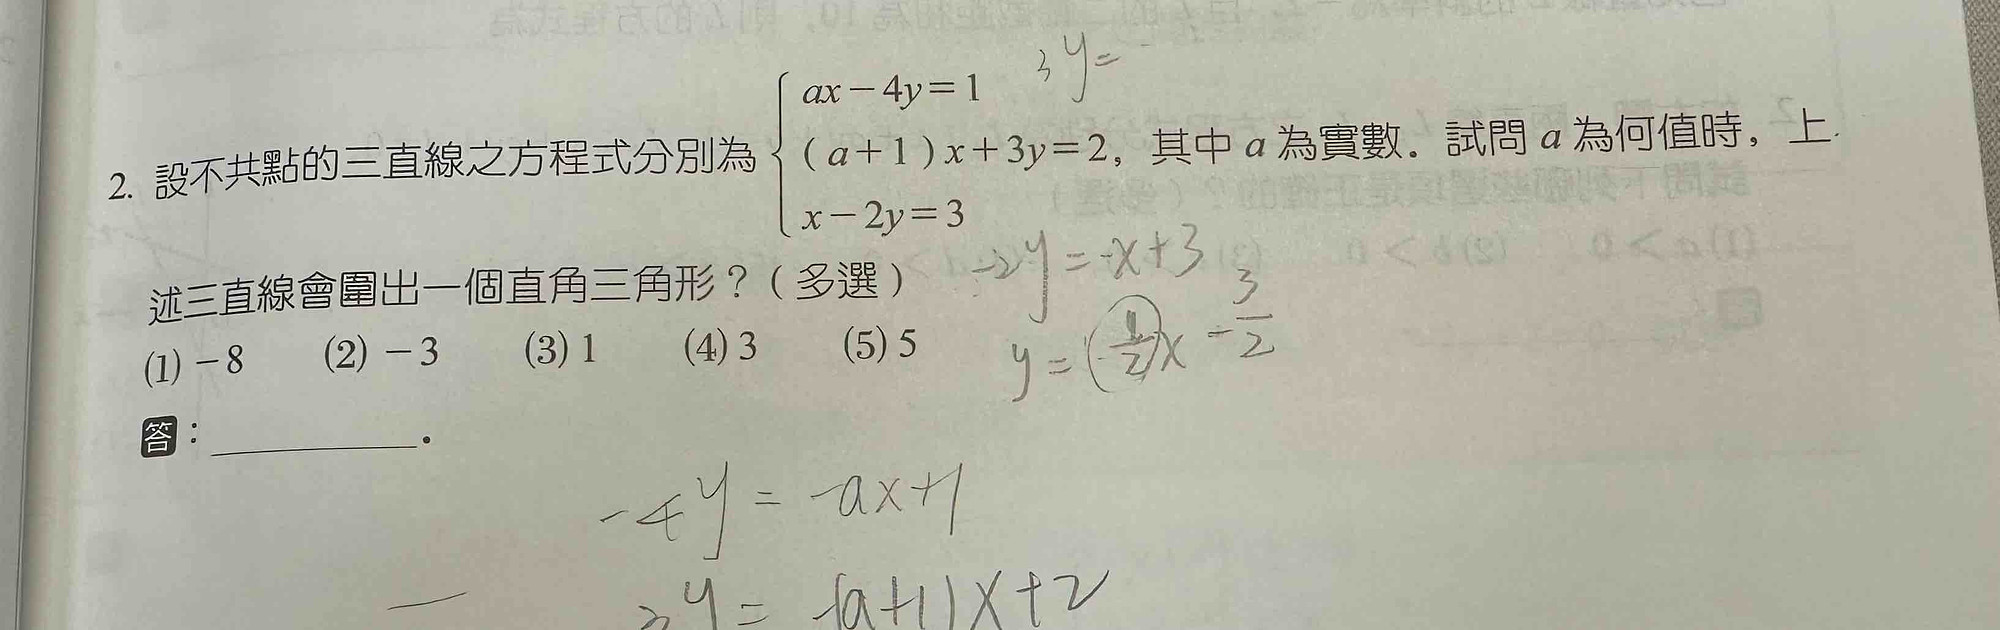 3y=
2. 設不共點的三直線之方程式分別為 { ax－4y=1
(a+1)x+3y=2, 其中 a 為實數．試問 a 為何值時，上
x－2y=3
述三直線會圍出一個直角三角形？（多選）
-2y=-x+3
(1)－8 (2)－3 (3) 1 (4) 3 (5) 5
y=(1/2)x-3/2
答：________．
-4y=-ax+1
3y=-(a+1)x+2